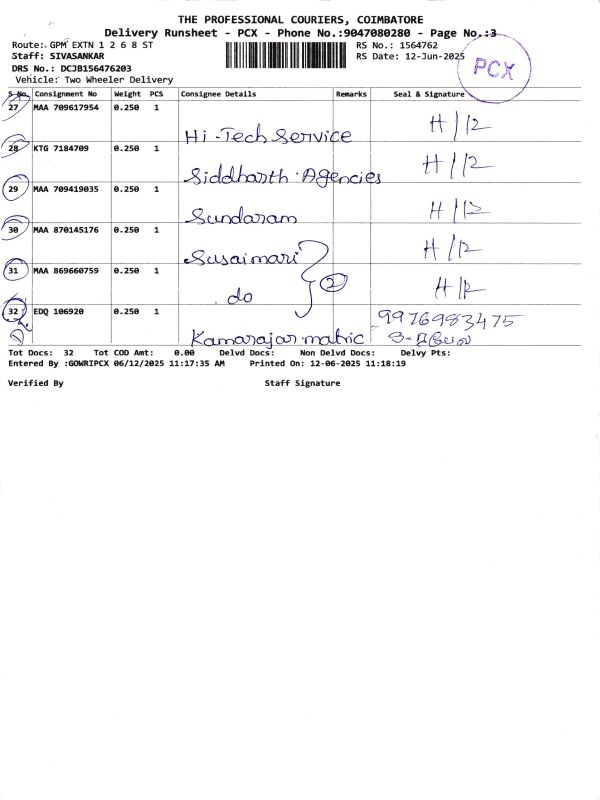 THE PROFESSIONAL COURIERS, COIMBATORE
Delivery Runsheet - PCX - Phone No.:9047080280 - Page No.:3
Route: GPM EXTN 1 2 6 8 ST RS No.: 1564762
Staff: SIVASANKAR RS Date: 12-Jun-2025
DRS No.: DCJB156476203
Vehicle: Two Wheeler Delivery
PCX
S No. Consignment No Weight PCS Consignee Details Remarks Seal & Signature
27 MAA 709617954 0.250 1 Hi-Tech Service H/12
28 KTG 7184709 0.250 1 Siddharth Agencies H/12
29 MAA 709419035 0.250 1 Sundaram H/12
30 MAA 870145176 0.250 1 Susaimari H/12
31 MAA 869660759 0.250 1 do 2 H/12
32 EDQ 106920 0.250 1 Kamarajar matric 9976983475
Tot Docs: 32 Tot COD Amt: 0.00 Delvd Docs: Non Delvd Docs: Delvy Pts:
Entered By :GOWRIPCX 06/12/2025 11:17:35 AM Printed On: 12-06-2025 11:18:19
Verified By Staff Signature